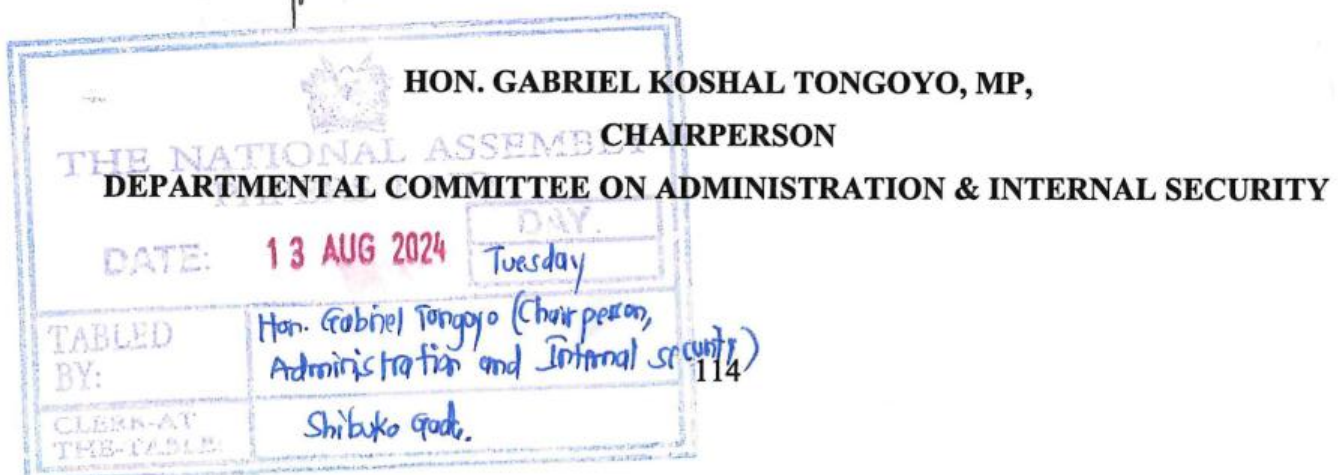 HON. GABRIEL KOSHAL TONGOYO, MP,
CHAIRPERSON
DEPARTMENTAL COMMITTEE ON ADMINISTRATION & INTERNAL SECURITY
THE NATIONAL ASSEMBLY
DAY.
DATE: 13 AUG 2024 Tuesday
TABLED BY: Hon. Gabriel Tongoyo (Chairperson,
Administration and Internal security)
114
CLERK-AT THE-TABLE: Shibuko